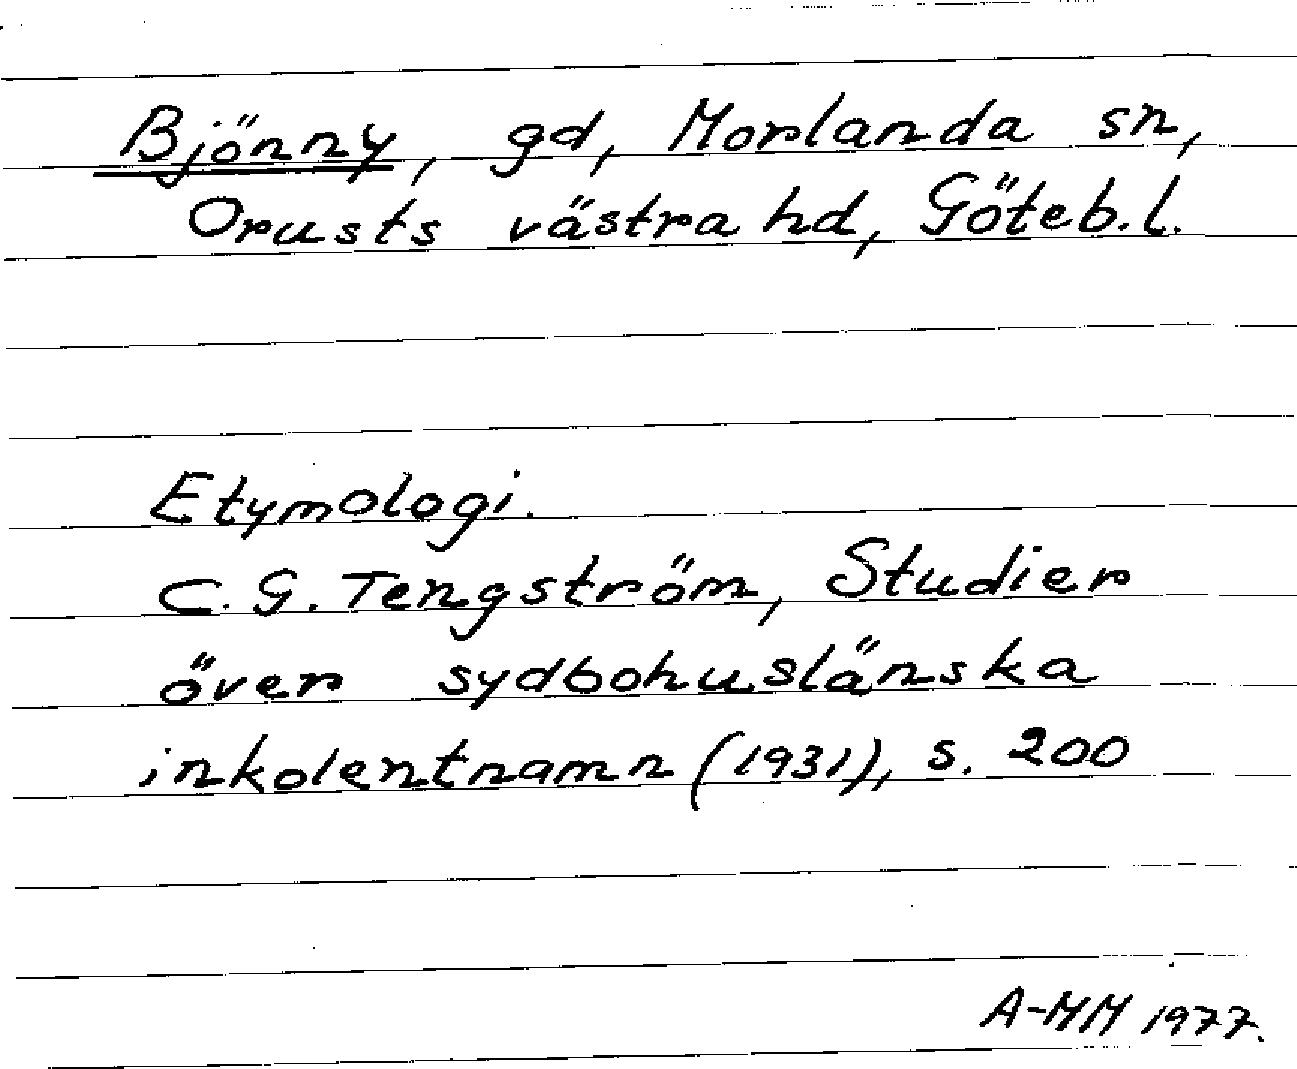 Bjönny, gd, Morlanda sn,
Orusts västra hd, Göteb.l.
Etymologi.
C.G. Tengström, Studier
över sydbohuslänska
inkolentnamn (1931), s. 200
A-MM 1977.